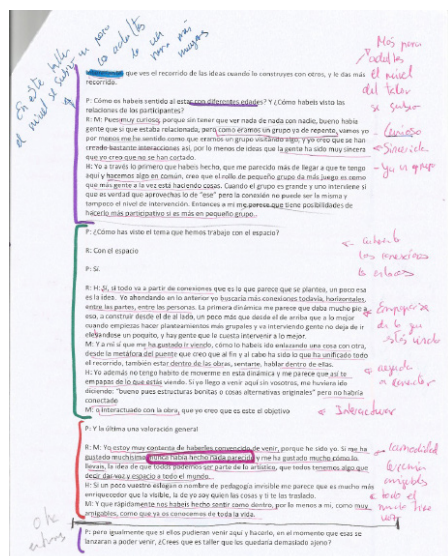 En este taller
el nivel se subió un poco
Más para
adultos
el nivel
del taller
se subió
que ves el recorrido de las ideas cuando lo construyes con otros, y le das más
recorrido.
P: Cómo os habéis sentido al estar con diferentes edades? Y ¿Cómo habéis visto las
relaciones de los participantes?
R: M: Pues muy curioso, porque sin tener que ver nada de nada con nadie, bueno había
gente que si que estaba relacionada, pero como éramos un grupo ya de repente, vamos yo
por lo menos me he sentido como que éramos un grupo visitando algo, y yo creo que se han
creado bastante interacciones así, por lo menos de ideas que la gente ha sido muy sincera
que yo creo que no se han cortado.
R: H: Yo a través lo primero que habéis hecho, que me parecido más de llegar a que te tengo
aquí y hacemos algo en común, creo que el rollo de pequeño grupo da más juego es como
que más gente a la vez está haciendo cosas. Cuando el grupo es grande y uno interviene si
que es verdad que aprovechas lo de "ese" pero la conexión no puede ser la misma y
tampoco el nivel de intervención. Entonces a mi me parece que tiene posibilidades de
hacerlo más participativo si es más en pequeño grupo.
Curioso
Sinceridad
Ya un grupo
P: ¿Cómo has visto el tema que hemos trabajo con el espacio?
R: Con el espacio
P: Sí.
R: H: Sí, si todo va a partir de conexiones que es lo que parece que se plantea, un poco esa
es la idea. Yo ahondando en lo anterior yo buscaría más conexiones todavía, horizontales,
entre las partes, entre las personas. La primera dinámica me parece que daba mucho pie a
eso, a construir desde el de al lado, un poco más que desde el de arriba que a lo mejor
cuando empiezas hacer planteamientos más grupales y va interviendo gente no deja de ir
elevándose un poquito, y hay gente que le cuesta intervenir a lo mejor.
M: Y a mí si que me ha gustado ir viendo, cómo lo habéis ido enlazando una cosa con otra,
desde la metáfora del puente que creo que al fin y al cabo ha sido lo que ha unificado todo
el recorrido, también estar dentro de las obras, sentarse, hablar dentro de ellas.
H: Yo además no tengo habito de moverme en esta dinámica y me parece que así te
empapas de lo que estás viendo. Si yo llego a venir aquí sin vosotros, me huviera ido
diciendo: "bueno pues estructuras bonitas o cosas alternativas originales" pero no habría
conectado
M: o interactuado con la obra, que yo creo que es este el objetivo
Empaparse
de lo que
estás viendo
ayuda
a conectar
Interactuar
P: Y la última una valoración general
R: M: Yo estoy muy contenta de haberles convencido de venir, porque he sido yo. Si me ha
gustado muchísimo nunca había hecho nada parecido y me ha gustado mucho cómo lo
lleváis, la idea de que todos podemos ser parte de lo artístico, que todos tenemos algo que
decir dar voz y espacio a todo el mundo.
H: Si un poco vuestro eslogan o nombre de pedagogía invisible me parece que es mucho más
enriquecedor que la visible, la de yo soy quien las cosas y ti te las traslado.
M: Y que rápidamente nos habéis hecho sentir como dentro, por lo menos a mí, como muy
amigables, como que ya os conocemos de toda la vida.
P: pero igualmente que si ellos pudieran venir aquí y hacerlo, en el momento que esas se
lanzaran a poder venir, ¿Crees que es taller que les quedaría demasiado ajeno?